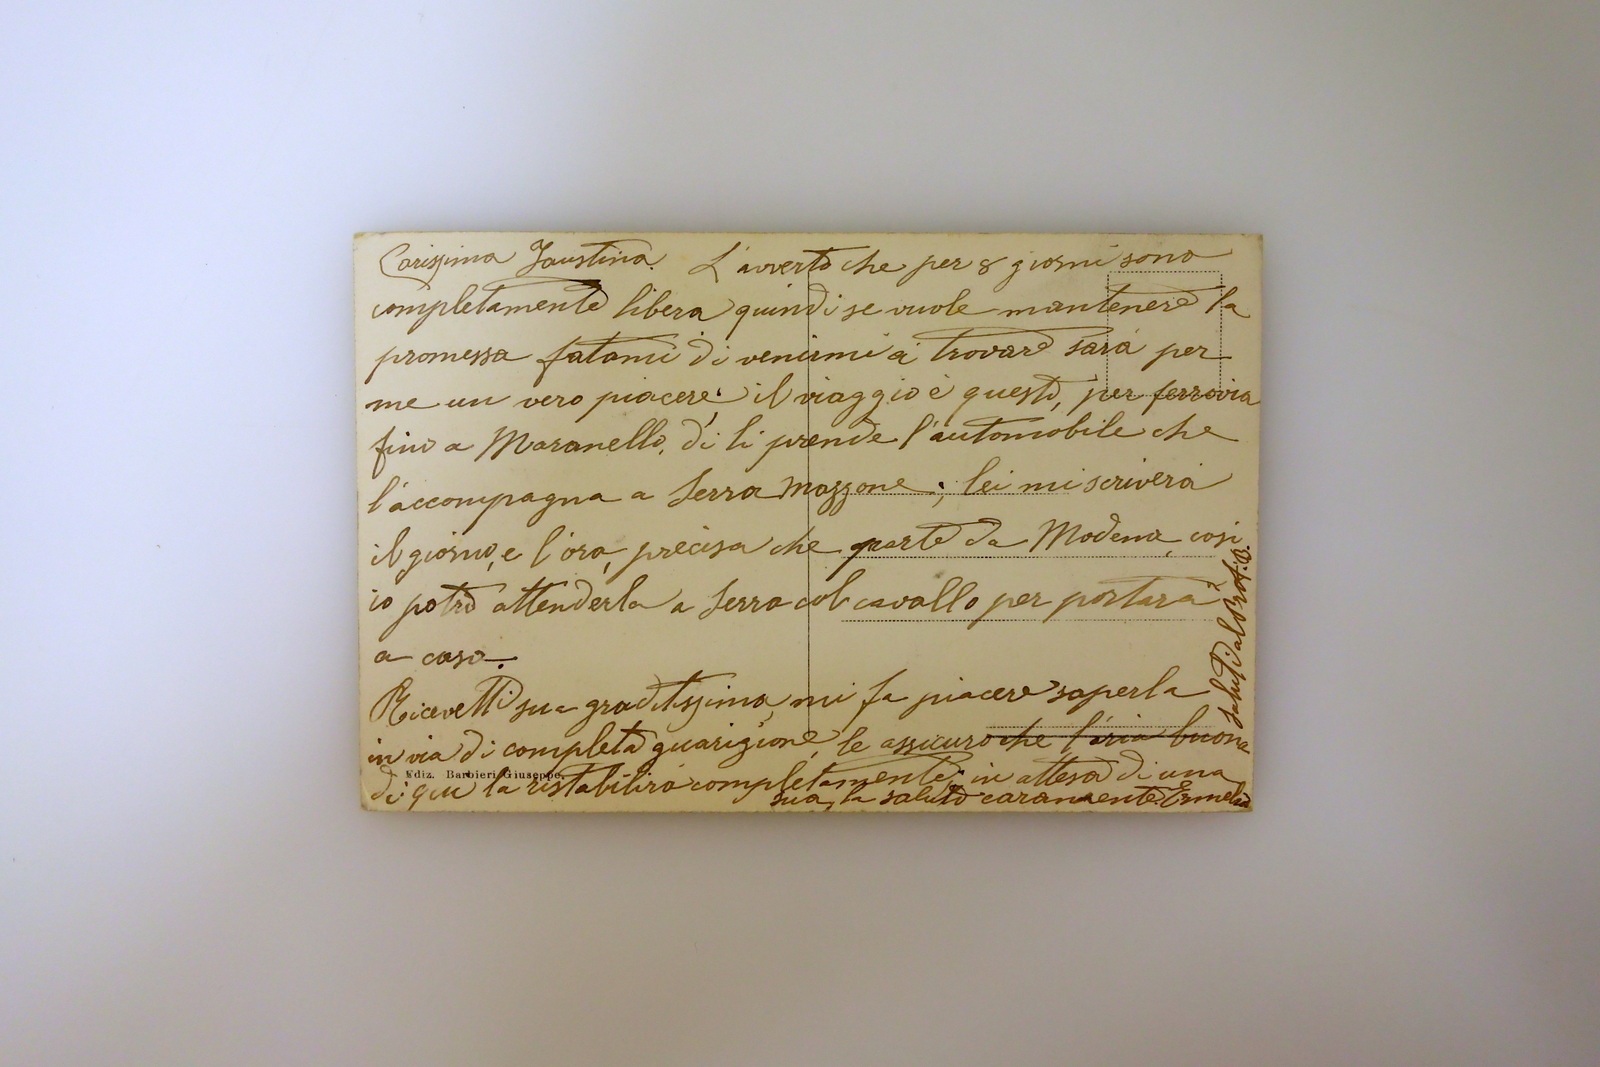 Carissima Faustina. L'averto che per 8 giorni sono
completamente libera quindi se vuole mantenere la
promessa fatami di venirmi a trovare sarà per
me un vero piacere; il viaggio è questo, per ferrovia
fino a Maranello, di li prende l'automobile che
l'accompagna a Serra Mazzone; lei mi scriverà
il giorno, e l'ora, precisa che parte da Modena, così
io potrò attenderla a Serra col cavallo per portarà
a casa.
Ricevetti sua graditissima, mi fa piacere saperla
in via di completa guarigione, le assicuro che l'aria buona
di qui la ristabilirà completamente; in attesa di una
sua, la saluto caramente. Ermelia
Saluti dal Prof. B.
Ediz. Barbieri Giuseppe.